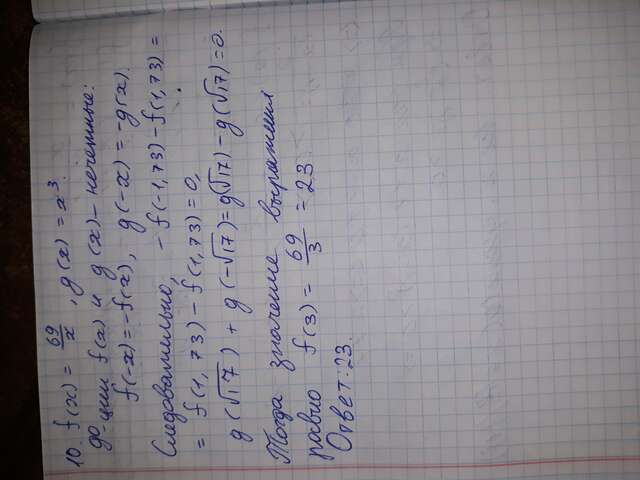 10. f(x) = 69/x, g(x) = x³.
ф-ции f(x) и g(x) – нечетные:
f(-x) = -f(x), g(-x) = -g(x).
Следовательно, -f(-1,73) - f(1,73) =
= f(1,73) - f(1,73) = 0,
g(√17) + g(-√17) = g(√17) - g(√17) = 0.
Тогда значение выражения
равно f(3) = 69/3 = 23
Ответ: 23.